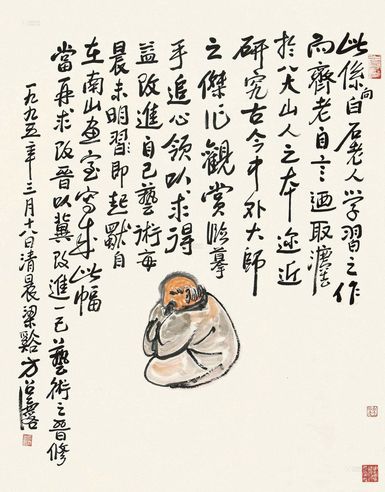 此係向白石老人学習之作
而齊老自言迺取
於八大山人之本迩近
研究古今中外大師
之傑作觀賞臨摹
手追心領以求得
益改進自己藝術每
晨未明習即起自
在南山画室寫成此幅
當再求改晉以冀改進一己藝術之晉修
一九九五年三月十八日清晨梁谿方召麐